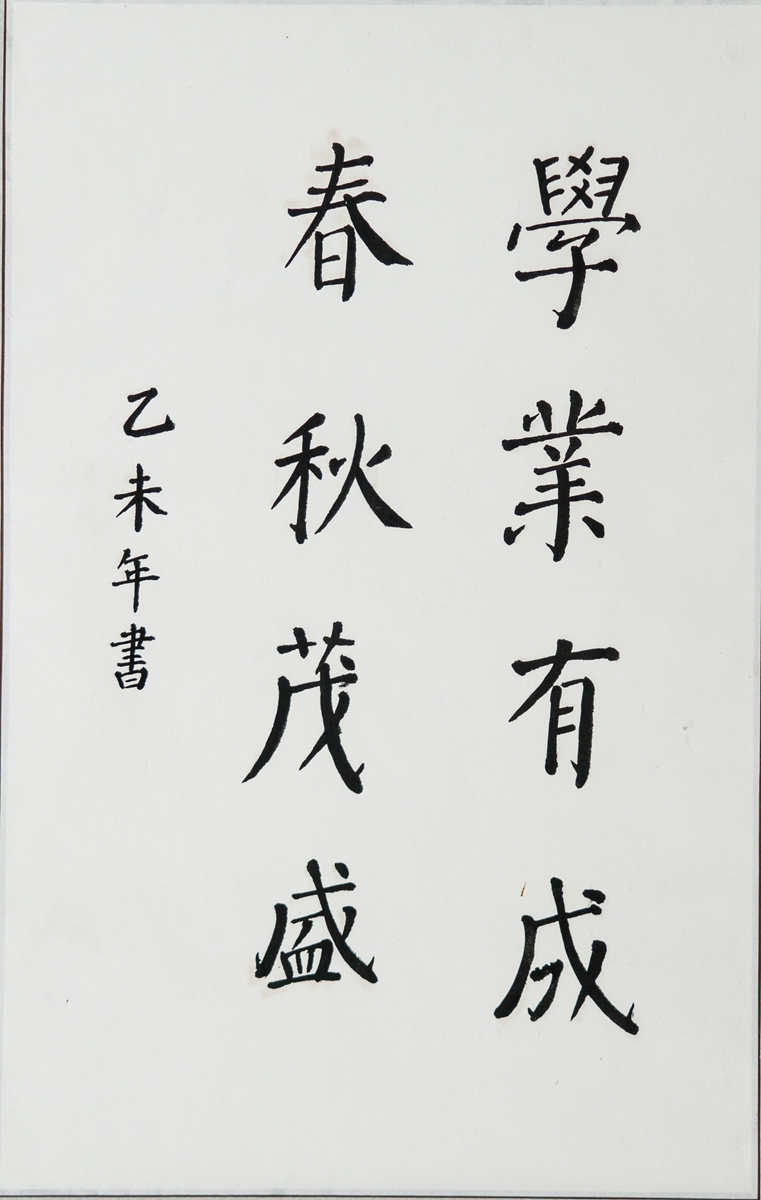 學業有成
春秋茂盛
乙未年書